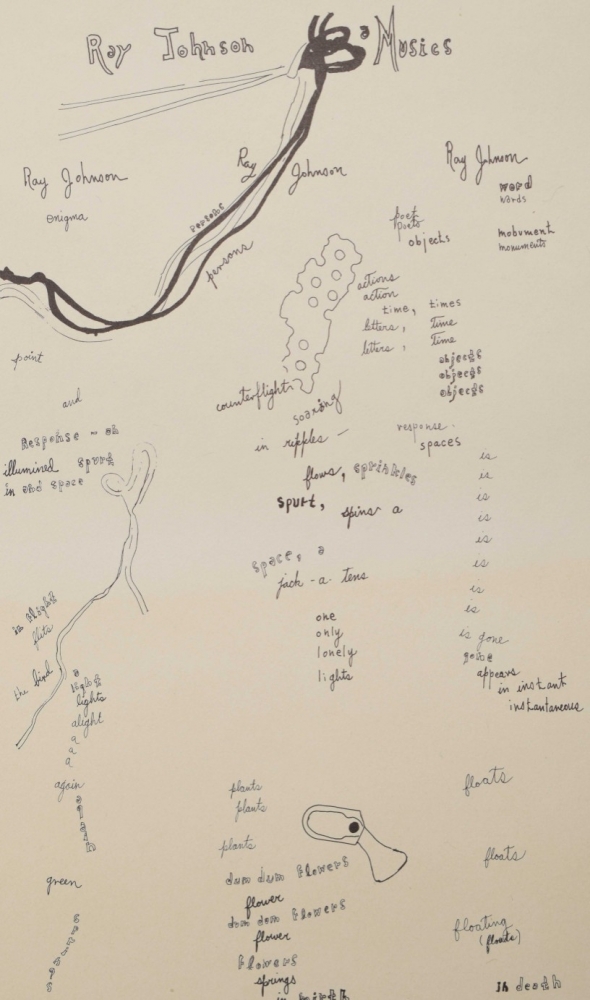 Ray Johnson
a Musics
Ray Johnson
enigma
Ray Johnson
persons
persons
Ray Johnson
word
words
mobument
monuments
poet
poets
objects
actions
action
time, times
letters, Time
letters, Time
objects
objects
objects
point
and
Response - oh
illumined spurt
in and space
counterflight
soaring
in ripples -
response.
spaces
flows, sprinkles
spurt, spins a
space, a
jack-a-tens
one
only
lonely
lights
is
is
is
is
is
is
is
is
is gone
gone
appears
in instant
instantaneous
in flight
flits
the bird
a
light
lights
alight
a
a
a
again
again
green
springs
plants
plants
plants
dum dum flowers
flower
dom dom flowers
flower
flowers
springs
in birth
floats
floats
floating
(floats)
In death